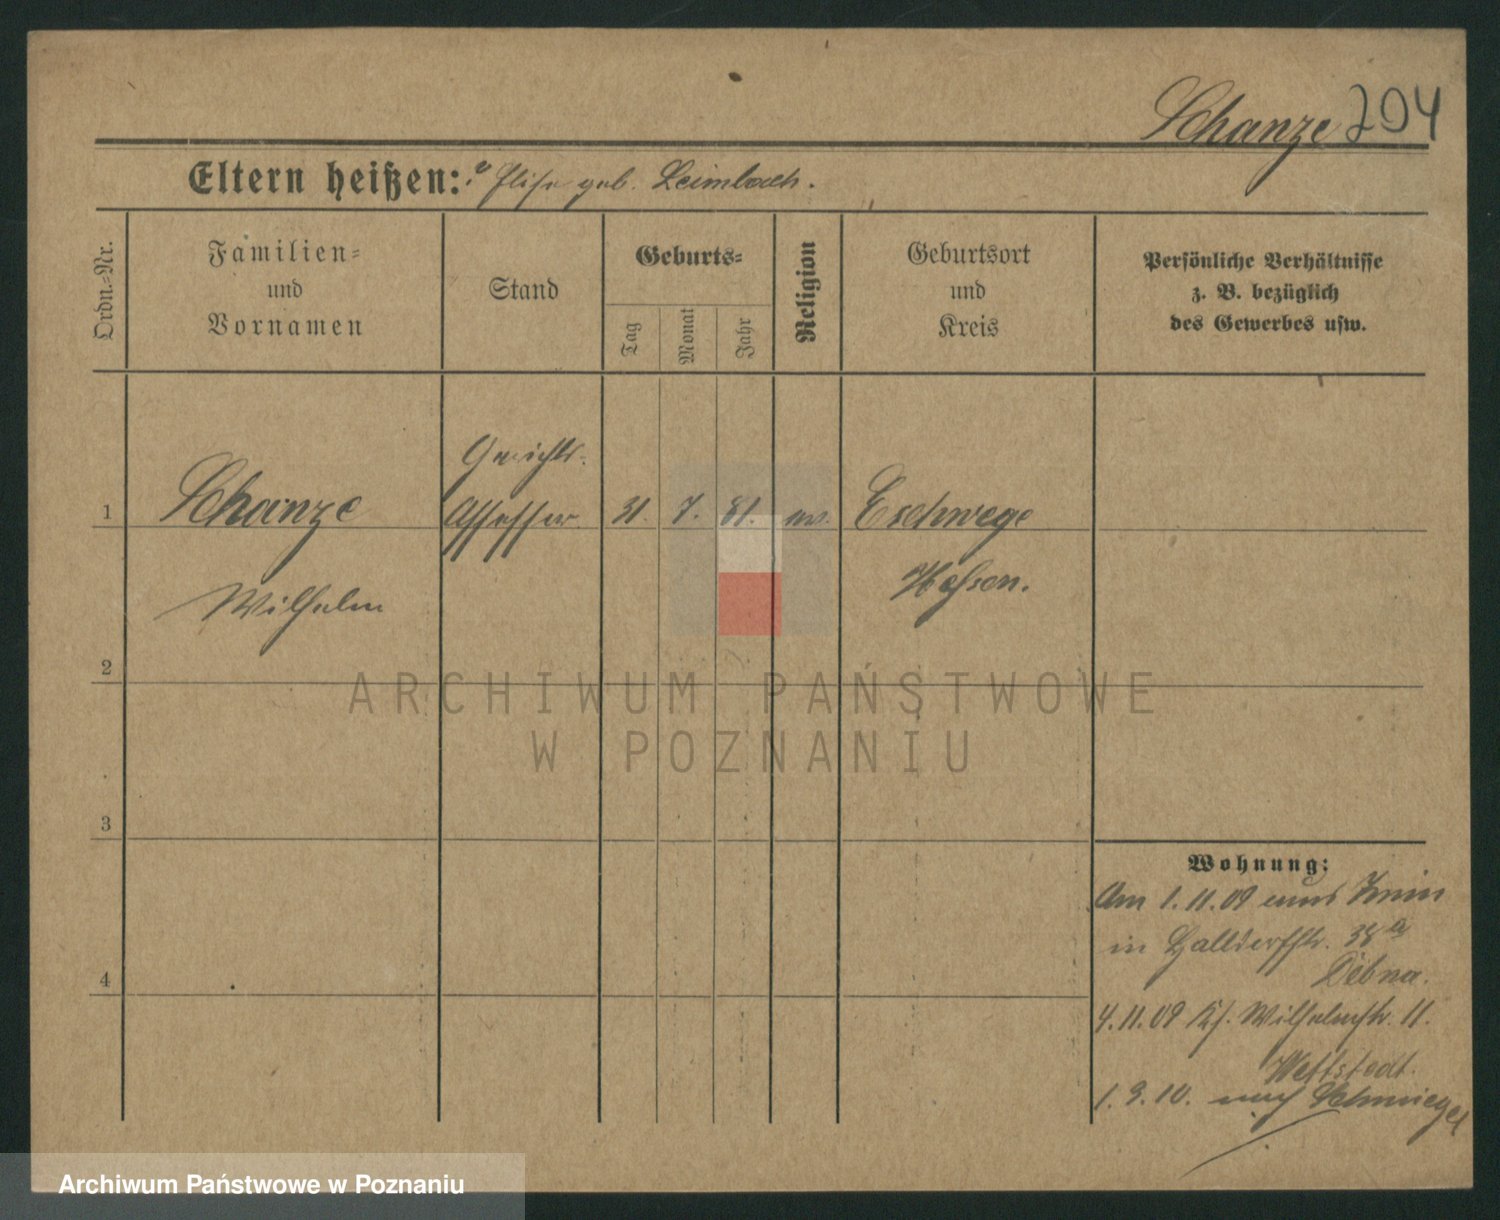 Schanze 204
Eltern heißen: Elise geb. Leimbach.
Ordn.-Nr.
Familien-
und
Vornamen
Stand
Geburts-
Tag
Monat
Jahr
Religion
Geburtsort
und
Kreis
Persönliche Verhältnisse
z. B. bezüglich
des Gewerbes usw.
Gerichts-
1 Schanze Assessor 31. 7. 81. ev. Eschwege
Wilhelm Hessen.
2
3
4
Wohnung:
Am 1.11.09 aus
in Halldorfstr. 38a
4.11.09 Wilhelmstr. 11.
1.3.10. nach Schmiegel
ARCHIWUM PAŃSTWOWE
W POZNANIU
Archiwum Państwowe w Poznaniu